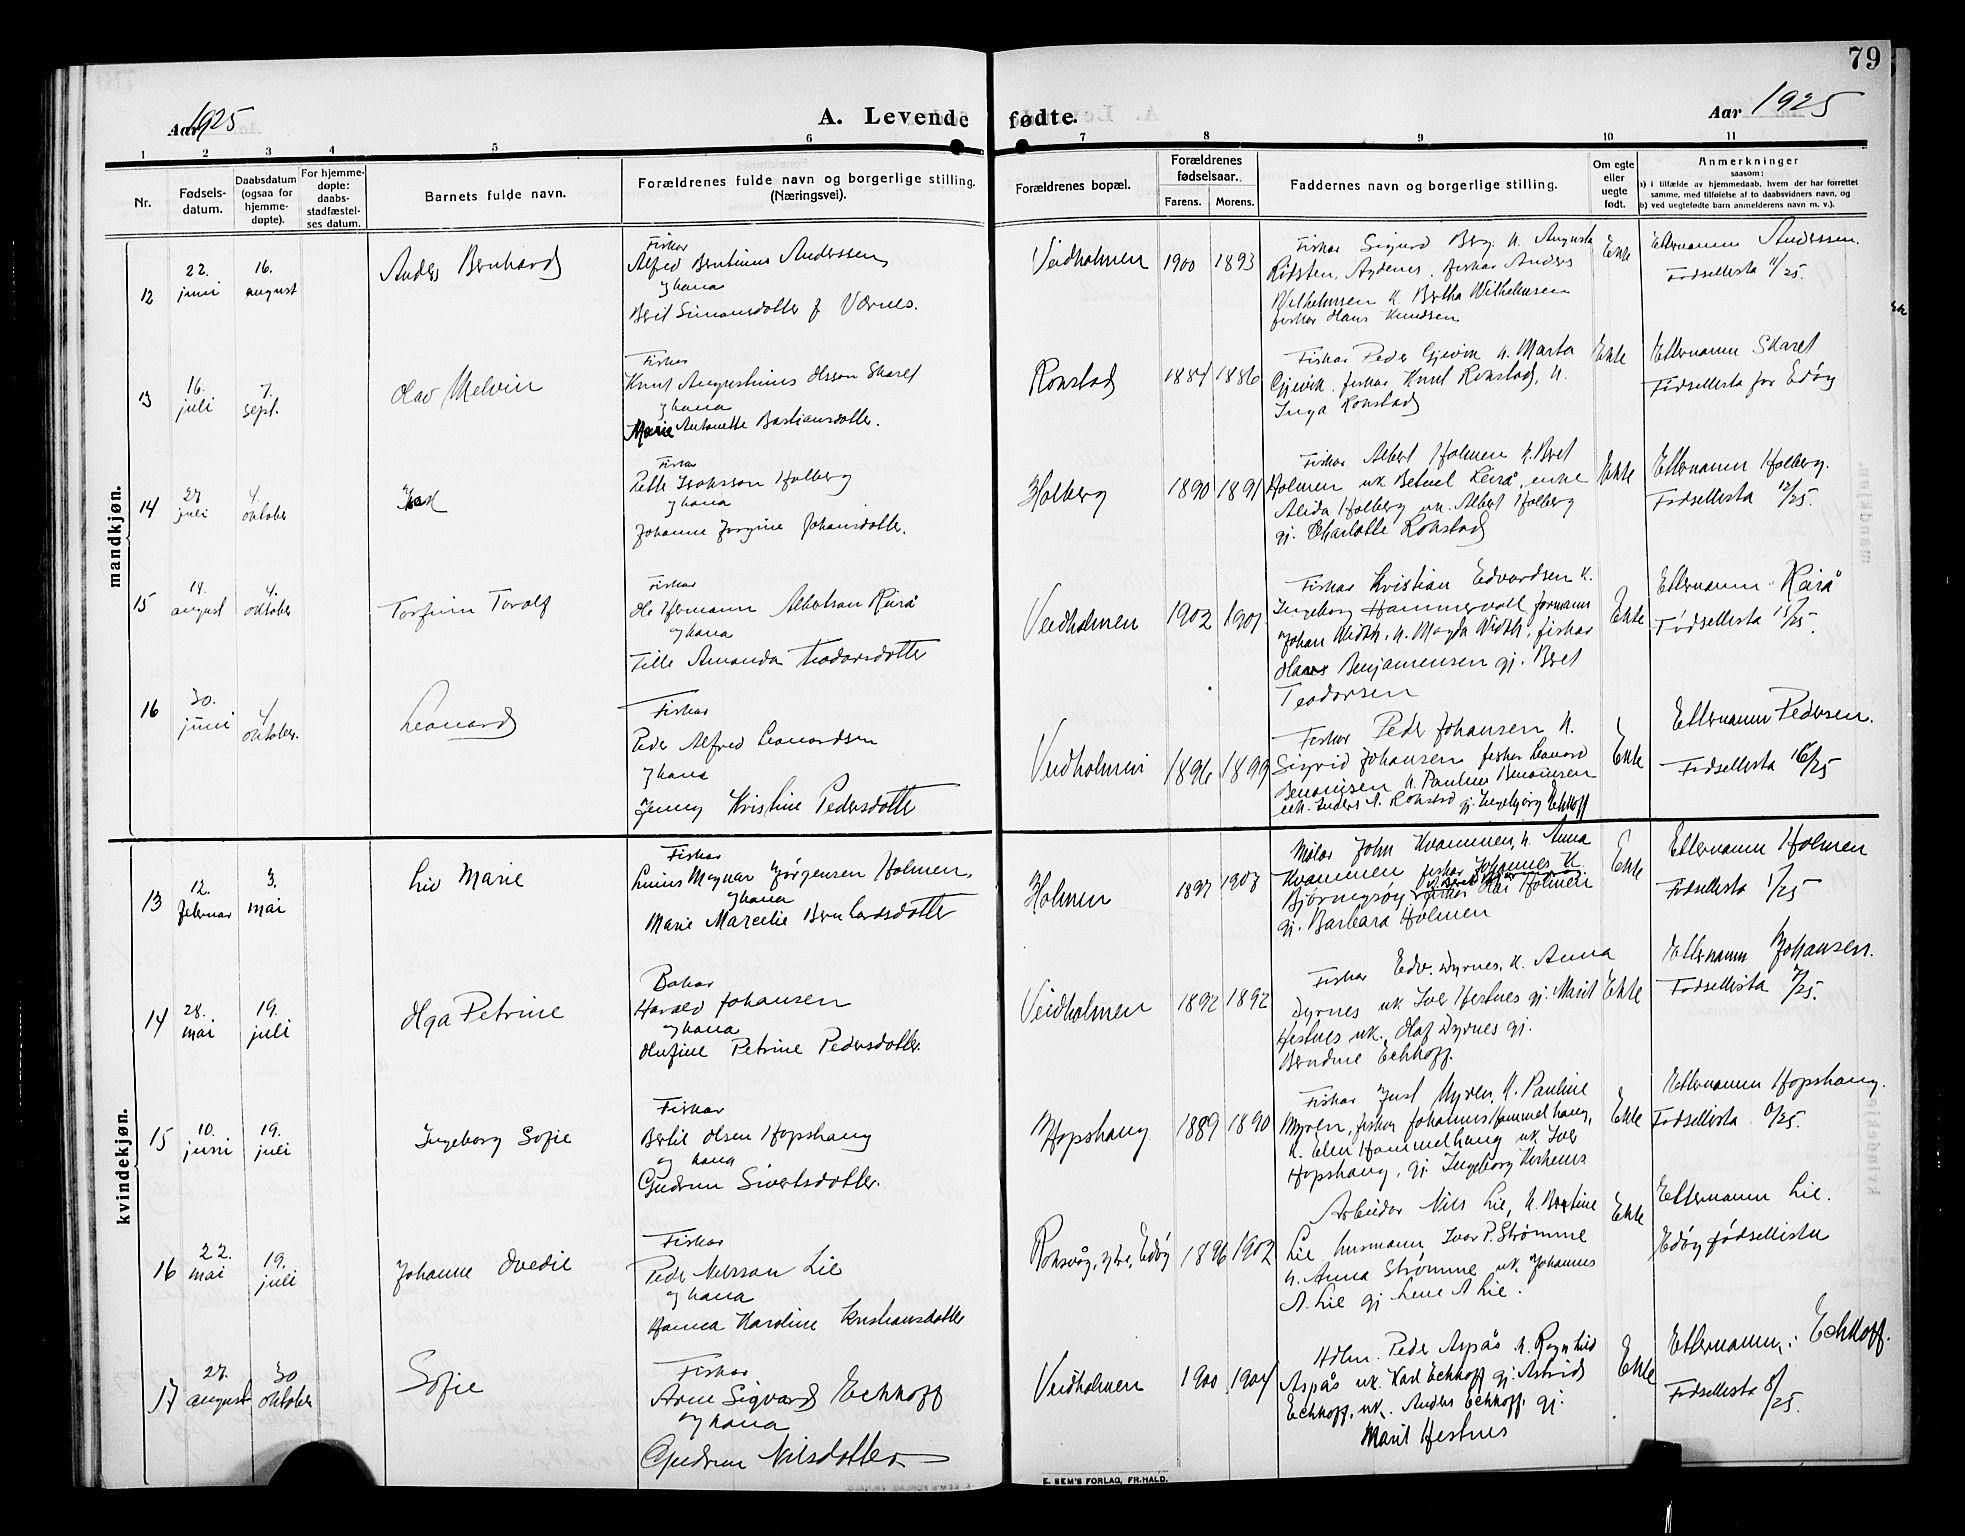 79
Aar 1925
A. Levende fødte.
Aar 1925
1 2 3 4 5 6 7 8 9 10 11
Nr.
Fødsels-
datum.
Daabsdatum
(ogsaa for
hjemme-
døpte).
For hjemme-
døpte:
daabs-
stadfæstel-
ses datum.
Barnets fulde navn.
Forældrenes fulde navn og borgerlige stilling.
(Næringsvei).
Forældrenes bopæl.
Forældrenes
fødselsaar.
Farens. Morens.
Faddernes navn og borgerlige stilling.
Om egte
eller
uegte
født.
Anmerkninger
saasom:
a) i tilfælde av hjemmedaab, hvem der har forrettet
samme, med tilføielse af to daabsvidners navn, og
b) ved uegtefødte barn anmelderens navn m. v.).
mandkjøn.
12
22.
juni
16.
august
Anders Bernhard
Fiskar
Alfred Bentinus Anderssen
og kona
Berit Simonsdotter f. Værnes.
Veidholmen
1900 1893
Fiskar Sigurd Berg, k. Augusta
Rødsten, Agdenes. fiskar Anders
Wilhelmsen k. Bertha Wilhelmsen
fiskar Hans Knudsen
Ekte
Etternamn Anderssen.
Fødsellista 11/25.
13
16.
juli
7.
sept.
Olav Melvin
Fiskar
Knut Augustinus Olsson Skaret
og kona
Marie Antonette Bastiansdotter.
Rokstad
1884 1886
Fiskar Peder Gjevik k. Marta
Gjevik, fiskar Knut Rokstad, k.
Inga Rokstad
Ekte
Etternamn Skaret
Fødsellista for Edøy
14
27
juli
4.
oktober
Fiskar
Petter Isaksson Holberg
og kona
Johanne Jørgine Johansdotter.
Holberg
1890 1891
Fiskar Albert Holmen k. Bret
Holmen uk. Betuel Leirå, enke
Alida Holberg uk. Albert Holberg
gj. Charlotte Rokstad
Ekte
Etternamn Holberg.
Fødsellista 12/25.
15
14.
august
4.
oktober
Torfinn Toralf
Fiskar
Ole Hermann Albertson Reirå
og kona
Tille Amanda Teodorsdotter
Veidholmen
1902 1901
Fiskar Kristian Edvardsen k.
Ingeborg Hammervoll formann
Johan Width, k. Magda Width, fiskar
Hans Benjaminsen gj. Bret
Teodorsen
Ekte
Etternamn Reirå
Fødsellista 15/25.
16
30.
juni
4.
oktober.
Leonard
Fiskar
Peder Alfred Leonardsen
og kona
Jenny Kristine Pedersdotter
Veidholmen
1896 1899
Fiskar Peder Johansen k.
Sigrid Johansen fiskar Leonard
Benonisen k. Pauline Benonisen
uk. Anders A. Rokstad gj. Ingebjørg Eckhoff
Ekte
Etternamn Pedersen.
Fødsellista 16/25
kvindekjøn.
13
12.
februar
3.
mai
Liv Marie
Fiskar
Linius Magnar Jørgensen Holmen.
og kona
Marie Marcelie Bernhardsdotter
Holmen
1897 1903
Målar John Kvammen, k. Anna
Kvammen fiskar Johannes k.
Bjørnegsøy fiskar Kår Holmen
gj. Barbara Holmen
Ekte
Etternamn Holmen
Fødsellista 1/25
14
28.
mai
19.
juli
Olga Petrine
Bakar
Harald Johansen
og kona
Olufine Petrine Pedersdotter.
Veidholmen
1892 1892
Fiskar Edv. Dyrnes, k. Anna
Dyrnes uk. Iver Hestnes gj. Marit
Hestnes uk. Olaf Dyrnes gj.
Berndine Eckhoff.
Ekte
Etternamn Johansen.
Fødsellista 7/25.
15
10.
juni
19.
juli
Ingeborg Sofie
Fiskar
Bertil Olsen Hopshaug
og kona
Gudrun Sivertsdotter.
Hopshaug
1889 1890
Fiskar Just Myren, k. Pauline
Myren, fiskar Johannes Hammelhaug,
k. Elen Hammelhaug uk. Iver
Hopshaug, gj. Ingeborg
Ekte
Etternamn Hopshaug.
Fødsellista
16
22.
mai
19.
juli
Johanne Ovedie
Fiskar
Peder Nilsson Lie
og kona
Hanna Karoline Kristiansdotter
Roksvåg, ytre, Edøy
1896 1902
Arbeider Nils Lie, k. Bratine
Lie husmann Ivar P. Strømme
k. Anna Strømme uk. Johannes
A. Lie gj Lene A Lie.
Ekte
Etternamn Lie.
Edøy fødsellista
17
27.
august
30
oktober
Sofie
Fiskar
Arne Sigvard Eckhoff
og kona
Gudrun Nilsdotter
Veidholmen
1900 1904
Hdlm. Peder Aspås k. Ragnhild
Aspås uk. Karl Eckhoff gj. Astrid
Eckhoff, uk. Anders Eckhoff. gj.
Marit Hestnes
Ekte
Etternamn: Eckhoff.
Fødsellista 8/25.
E. SEM'S FORLAG, FR.HALD.